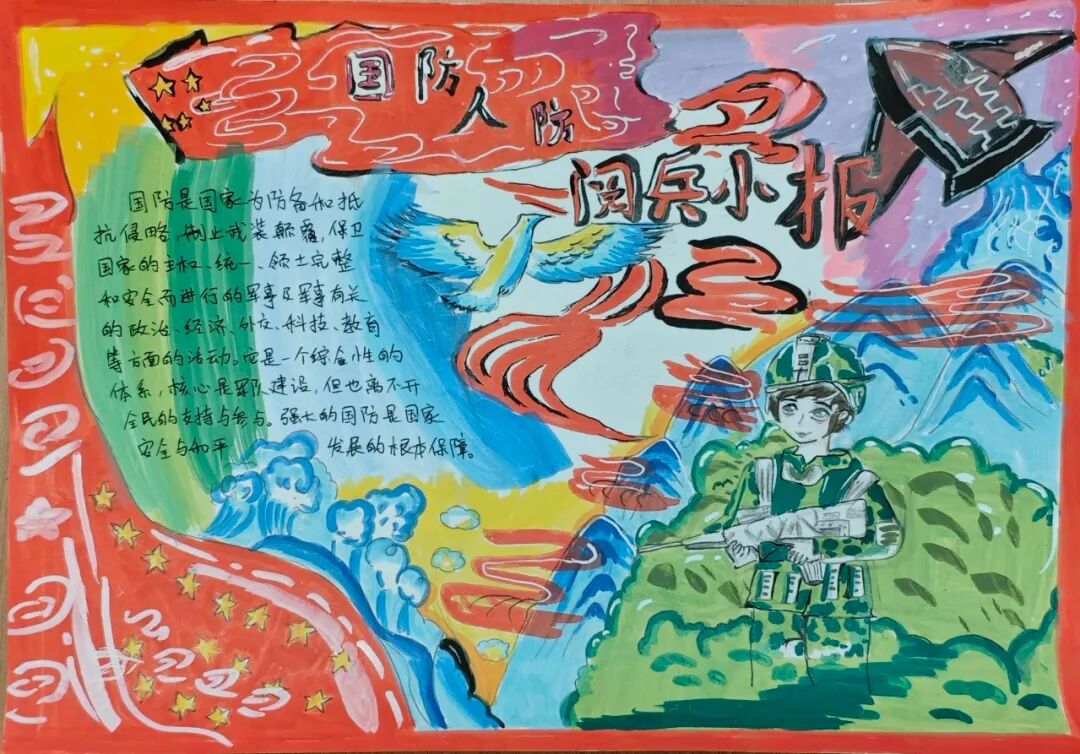 国防
人防
阅兵小报
国防是国家为防备和抵
抗侵略,制止武装颠覆,保卫
国家的主权、统一、领土完整
和安全而进行的军事及军事有关
的政治、经济、外交、科技、教育
等方面的活动。它是一个综合性的
体系,核心是军队建设,但也离不开
全民的支持与参与。强大的国防是国家
安全与和平 发展的根本保障。